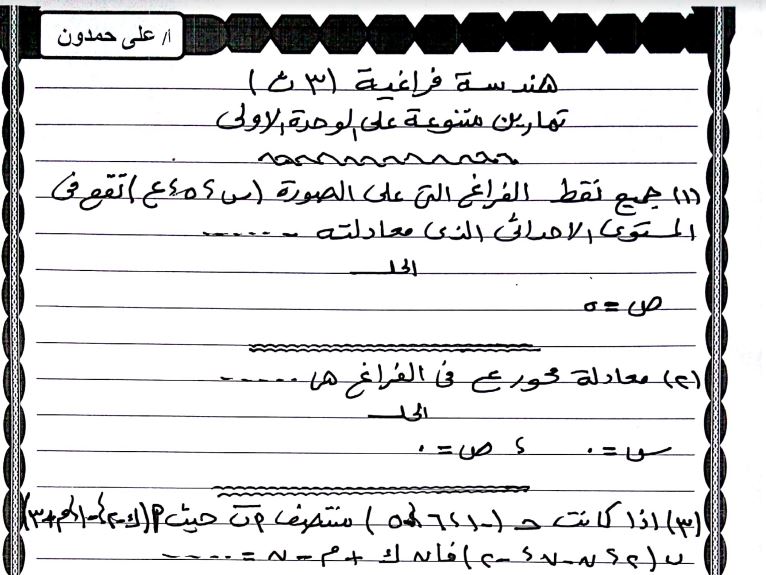 أ/ على حمدون
هندسة فراغية (٣ ث)
تمارين متنوعة على الوحدة الاولى
(١) جميع نقط الفراغ التى على الصورة (س ، ٥ ، ع) تقع فى
المستوى الاحداثى الذى معادلته ------
الحل
ص = ٥
(٢) معادلة محور ع فى الفراغ هى ------
الحل
س = ٠ ، ص = ٠
(٣) اذا كانت حـ منتصف حيث
فان ك + م - ن = -----